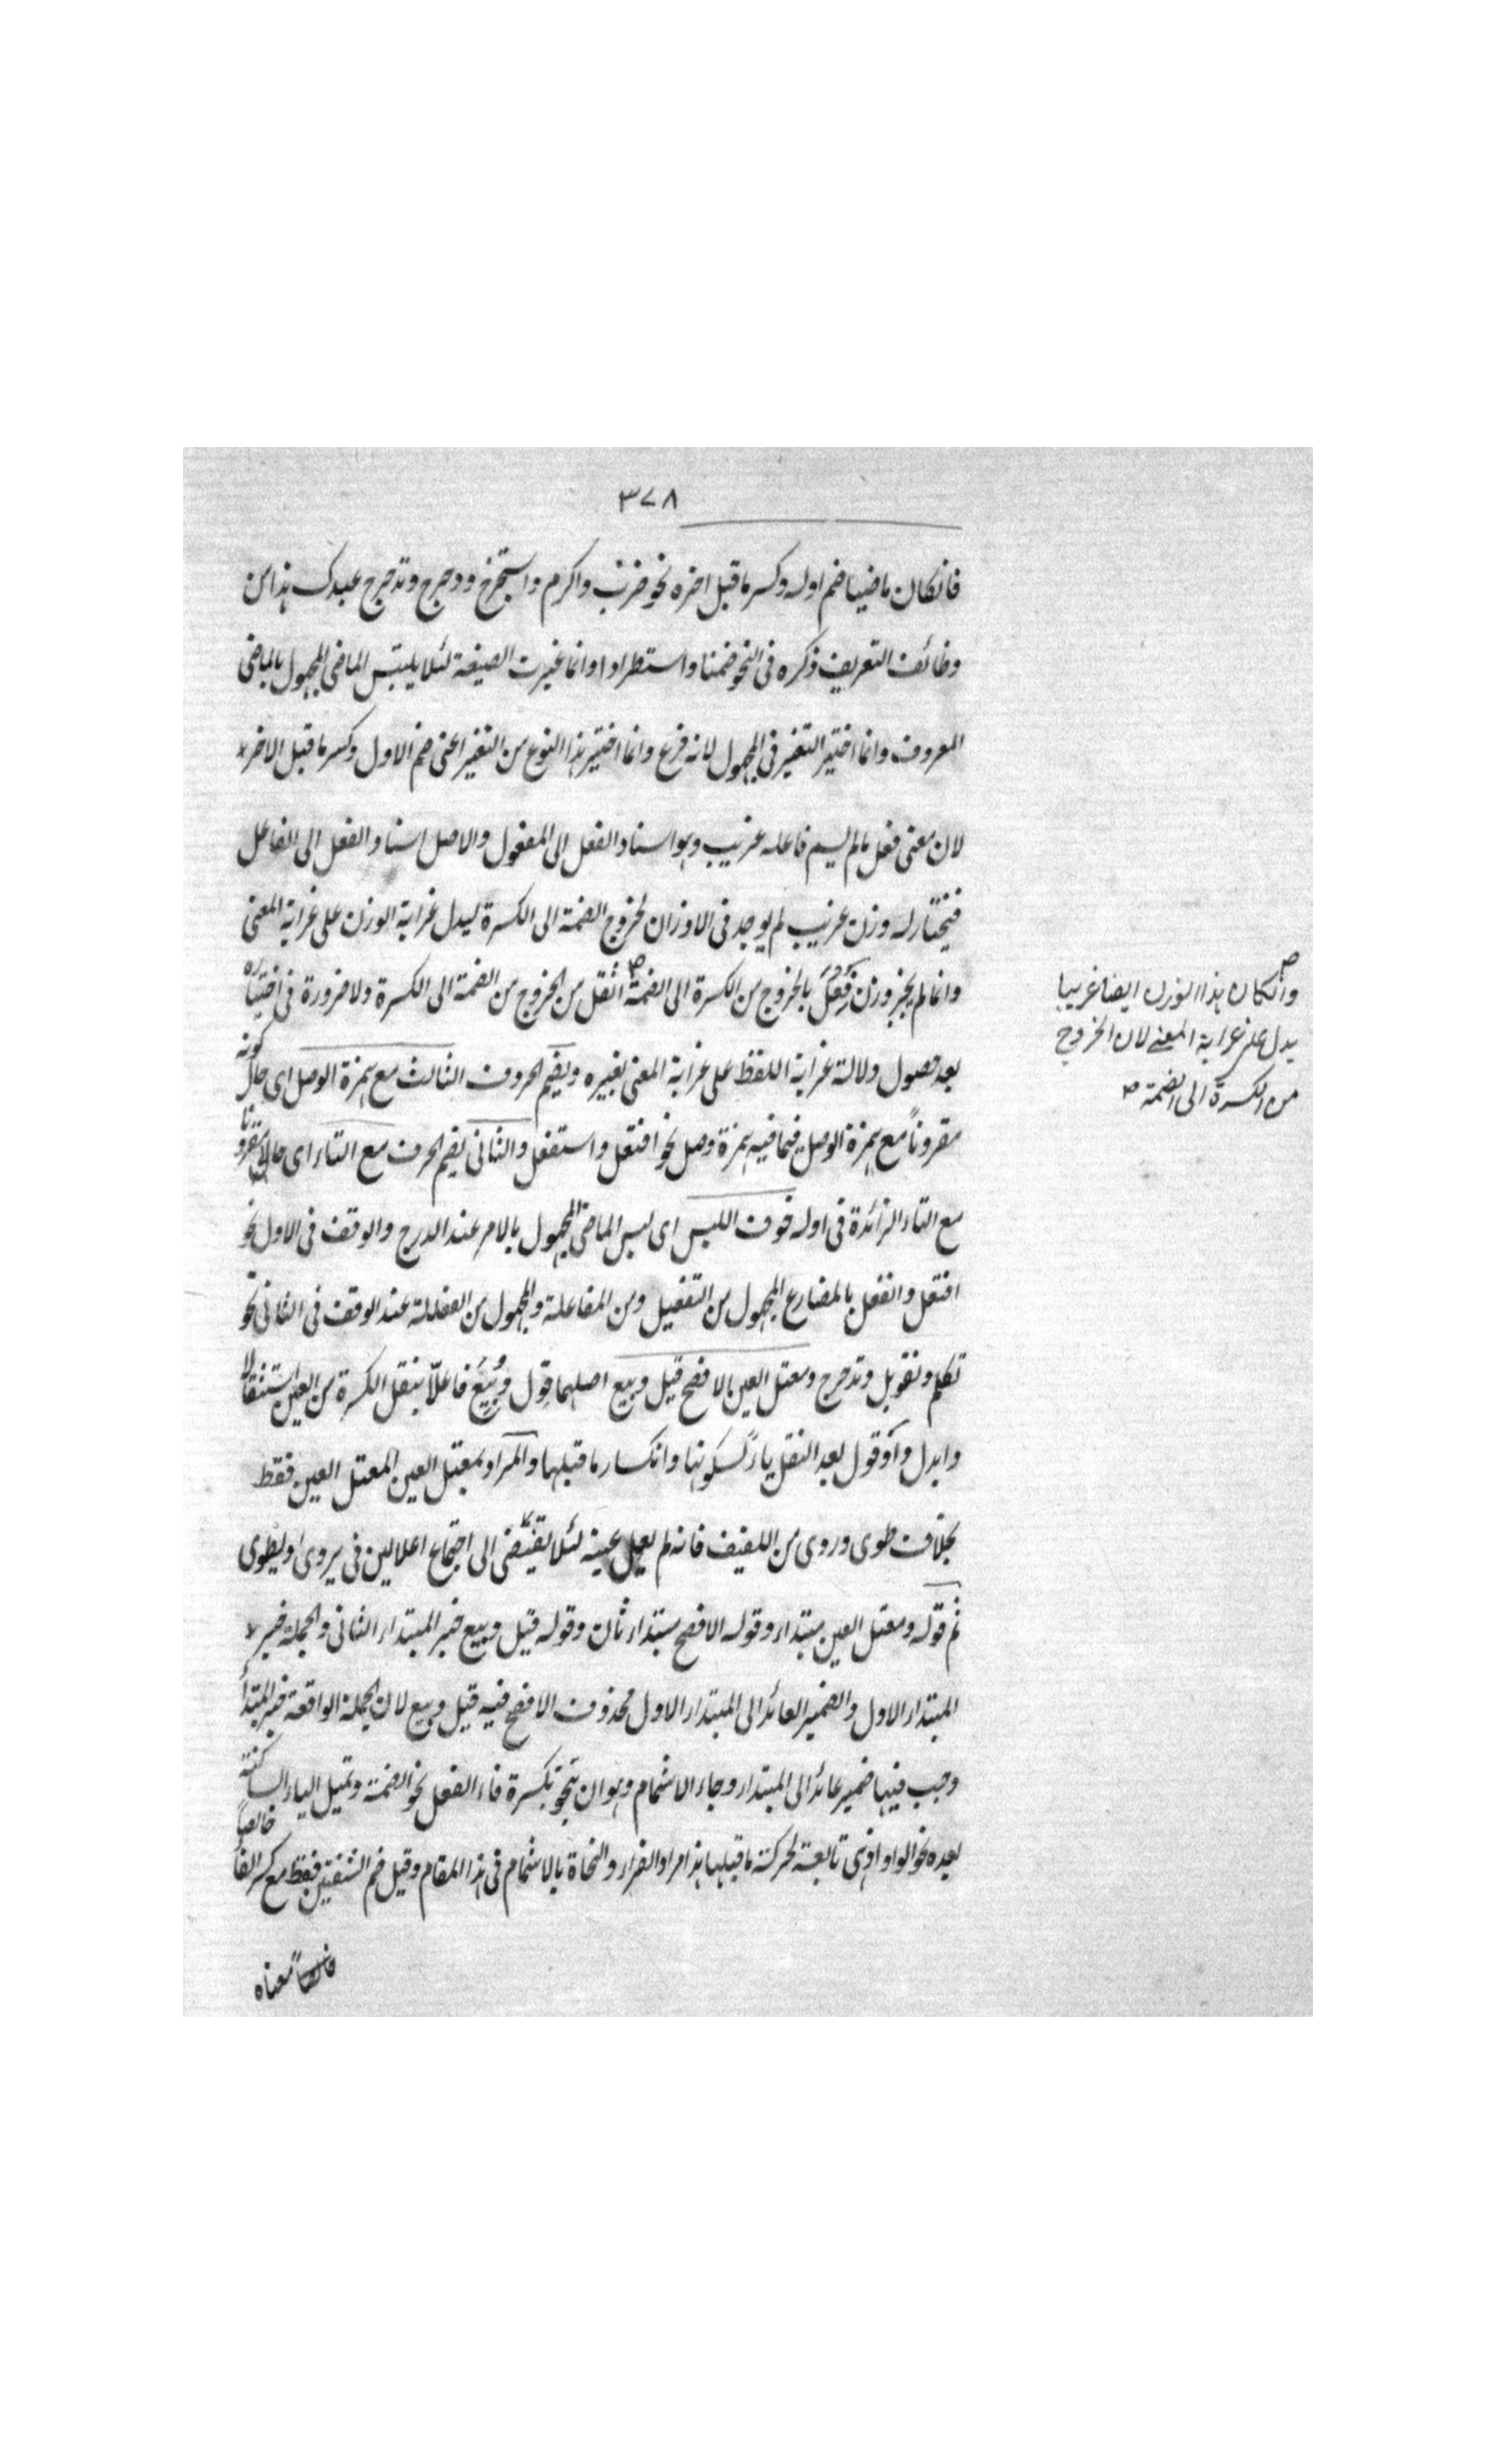 ٣٧٨
فانكان ماضيا ضم اوله وكسر ما قبل اخره نحو ضرب واكرم واستخرج ودحرج وتدحرج عبدك هذا من
وظائف التعريف ذكره فى النحو ضمنا واستطرادا وانما غيرت الصيغة لئلا يلتبس الماضى المجهول بالماضى
المعروف وانما اختير التغير فى المجهول لانه فرع وانما اختير هذا النوع من التغير اعنى ضم الاول وكسر ما قبل الاخر
لان معنى فعل ما لم يسم فاعله غريب وهو اسناد الفعل الى المفعول والاصل اسناد الفعل الى الفاعل
فيختار له وزن غريب لم يوجد فى الاوزان لخروج الضمة الى الكسرة ليدل غرابة الوزن على غرابة المعنى
وانما لم يجز وزن فِعُلَ بالخروج من الكسرة الى الضمة اثقل من الخروج من الضمة الى الكسرة ولا ضرورة فى اختياره
وانكان هذا الوزن ايضا غريبا
يدل على غرابة المعنى لان الخروج
من الكسرة الى الضمة
بعد حصول دلالة غرابة اللفظ على غرابة المعنى بغيره ويضم الحروف الثالث مع همزة الوصل اى حال كونه
مقروناً مع همزة الوصل فيما فيه همزة وصل نحو افتعل واستفعل والثانى يضم الحرف مع التاء اى حال مقرونا
مع التاء الزائدة فى اوله خوف اللبس اى لبس الماضى المجهول بالامر عند الدرج والوقف فى الاول نحو
افتعل وانفعل بالمضارع المجهول من التفعيل ومن المفاعلة والمجهول من الفعللة عند الوقف فى الثانى نحو
تعلم وتقوبل وتدحرج ومعتل العين الافصح قيل وبيع اصلهما قول وبُيِعَ فاعلّا بنقل الكسرة من العين استثقالا
وابدل واو قول بعد النقل ياء لسكونها وانكسار ما قبلها والمراد بمعتل العين المعتل العين فقط
بخلاف طوى وروى من اللفيف فانه لم يعل عينه لئلا يقتضى الى اجتماع اعلالين فى يروى ويطوى
ثم قوله ومعتل العين مبتداء وقوله الافصح مبتداء ثان وقوله قيل وبيع خبر المبتداء الثانى والجملة خبر
المبتداء الاول والضمير العائد الى المبتداء الاول محذوف الافصح فيه قيل وبيع لان الجملة الواقعة خبر المبتدأ
وجب فيها ضمير عائد الى المبتداء وجاء الاشمام وهو ان تنحو بكسرة فاء الفعل نحو الضمة وتميل الياء الساكنة
بعده نحو الواو اذ هى تابعة لحركة ما قبلها هذا مراد القراء والنحاة بالاشمام فى هذا المقام وقيل ضم الشفتين فقط مع كسر الفاء خالصاً
معناه